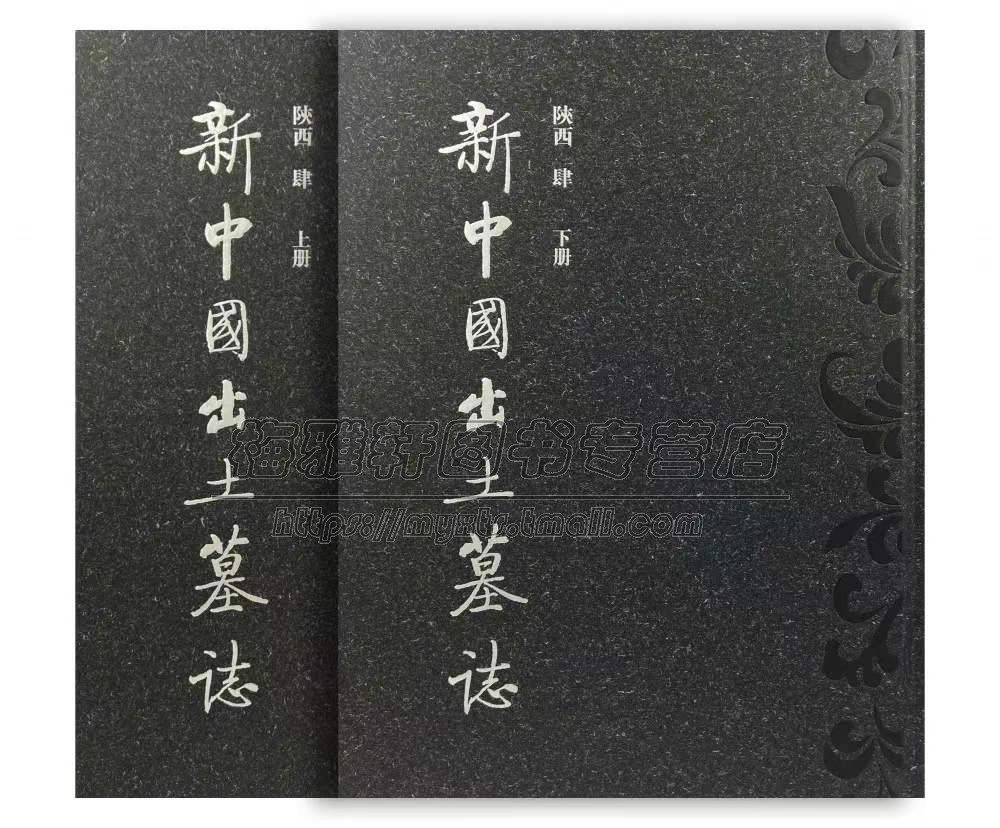 新中國出土墓誌
陝西 肆 上册
新中國出土墓誌
陝西 肆 下册
梅雅轩图书专营店
https://myxts.tmall.com